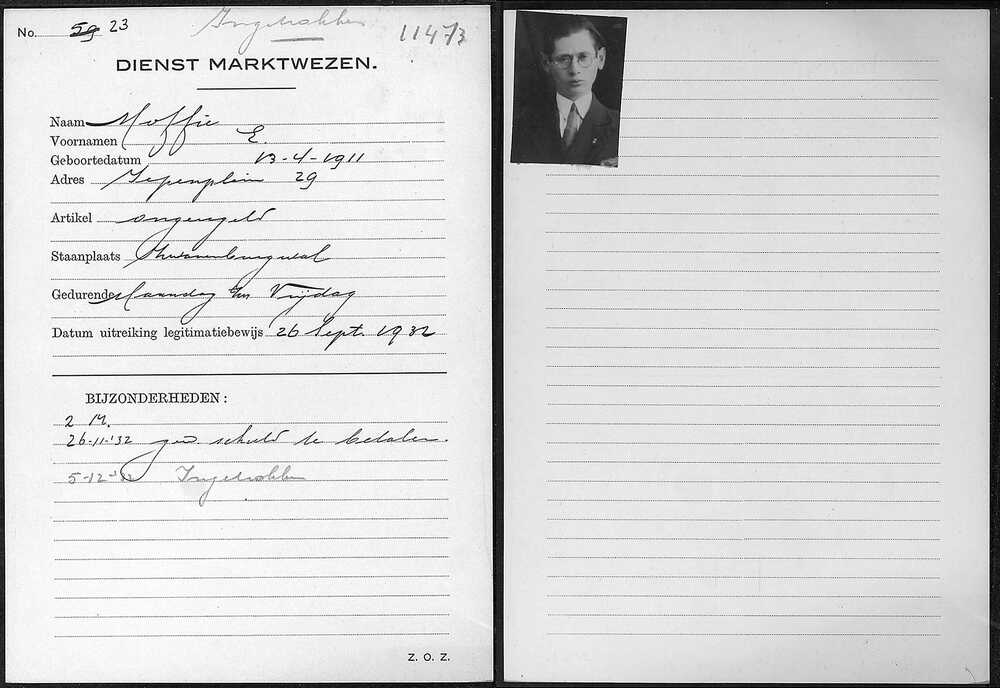 Ingetrokken
No. 59 23
11473
DIENST MARKTWEZEN.
Naam Moffie
Voornamen E.
Geboortedatum 13-4-1911
Adres Iepenplein 29
Artikel ongeregeld
Staanplaats Zwanenburgwal
Gedurende Maandag t/m Vrijdag
Datum uitreiking legitimatiebewijs 26 Sept. 1932
BIJZONDERHEDEN:
2 M.
26-11-'32 gew. schuld te betalen.
5-12-'32 Ingetrokken
Z. O. Z.